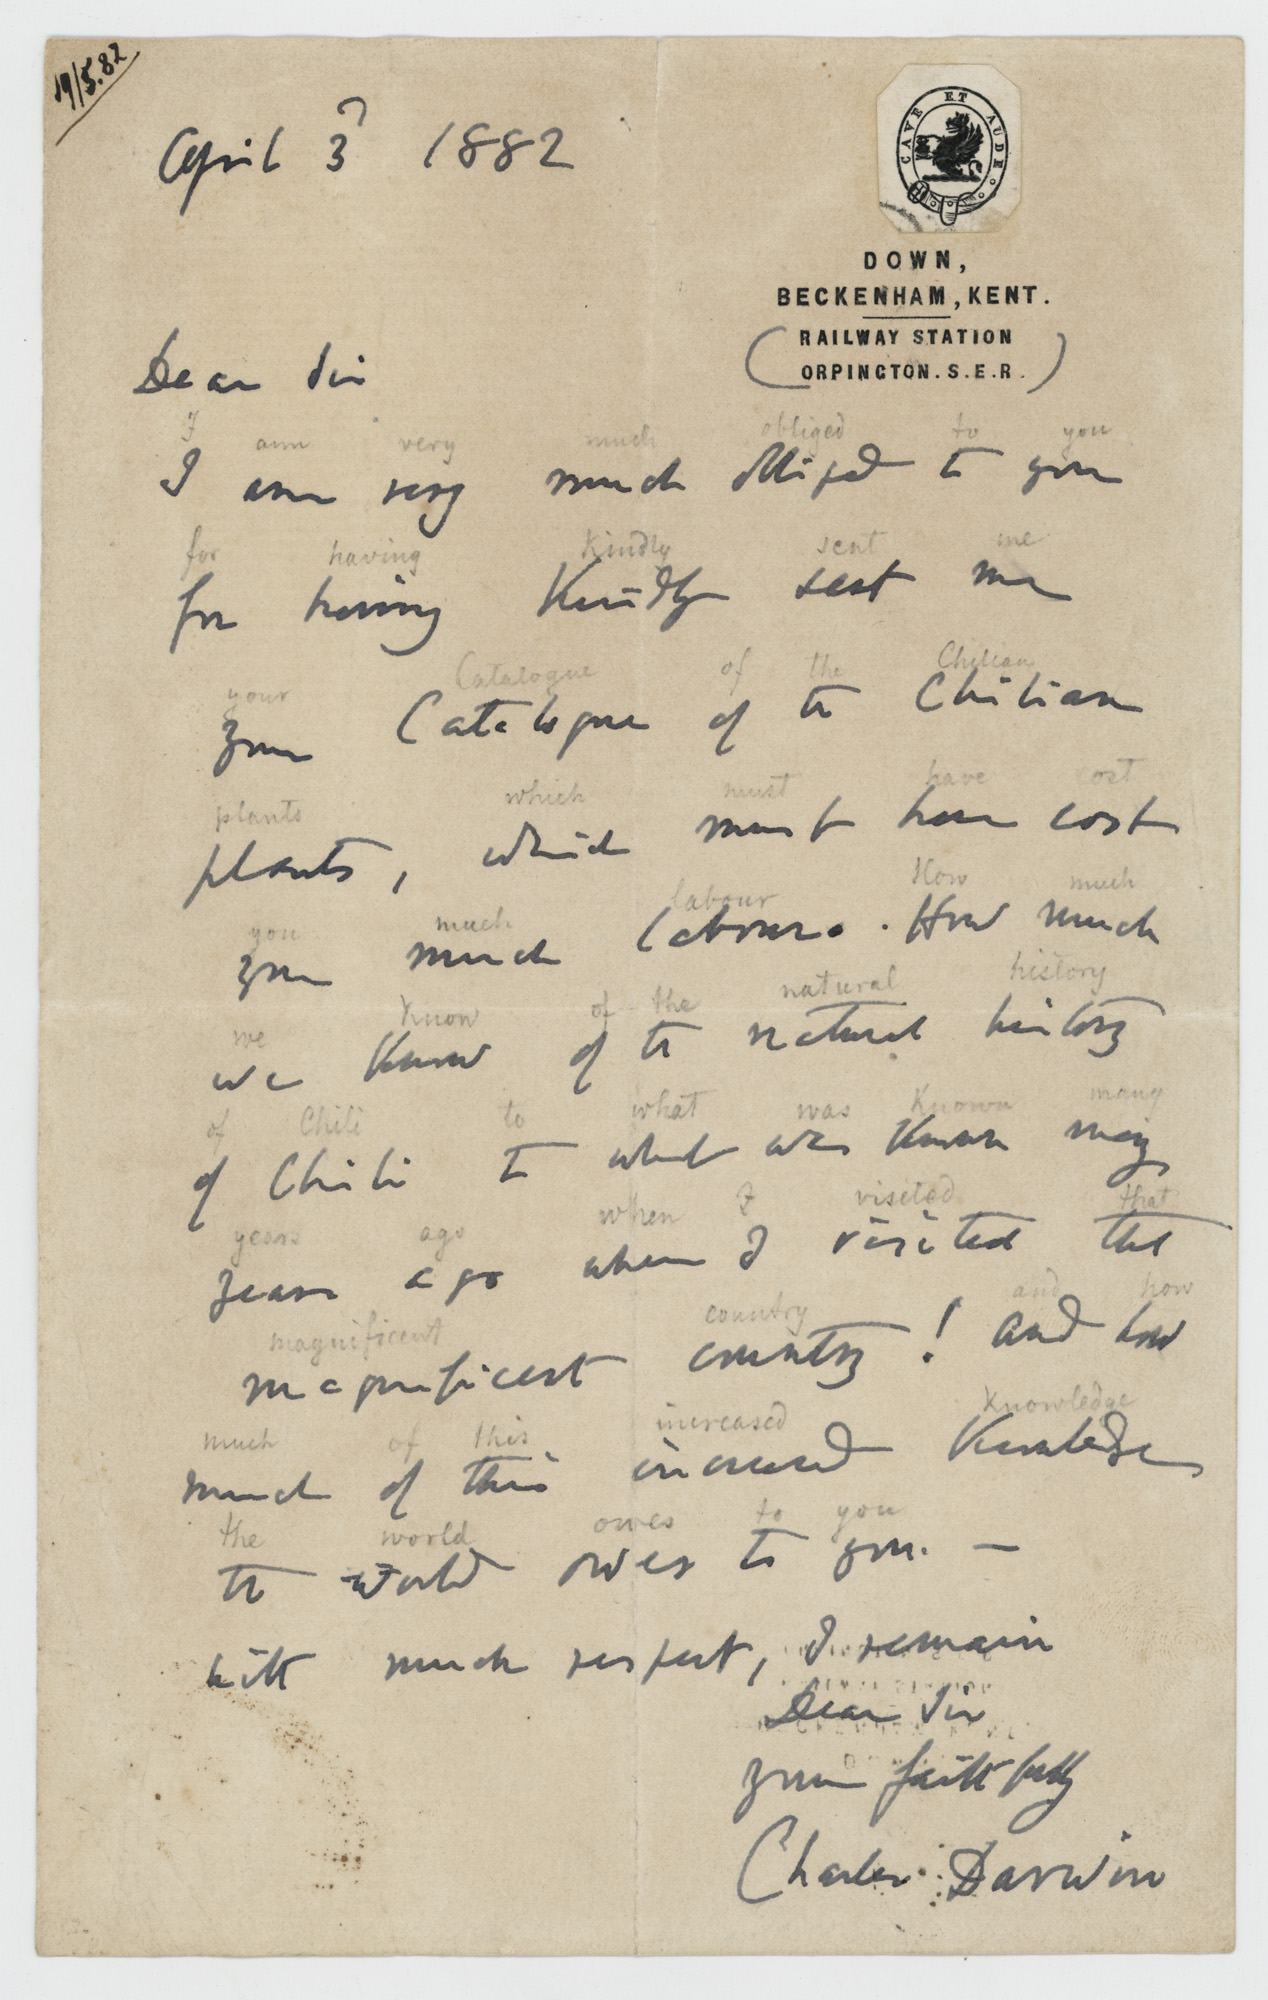 19/5.82
April 3d 1882
CAVE ET AUDE
DOWN,
BECKENHAM, KENT.
(RAILWAY STATION
ORPINGTON. S.E.R.)
Dear Sir
I am very much obliged to you
I am very much obliged to you
for having Kindly sent me
for having Kindly sent me
your Catalogue of the Chilian
your Catalogue of the Chilian
plants which must have cost
plants, which must have cost
you much labour How much
you much labour. How much
we Know of the natural history
we Know of the natural history
of Chili to what was Known many
of Chili to what was Known many
years ago when I visited that
years ago when I visited that
magnificent country and how
magnificent country! and how
much of this increased Knowledge
much of this increased Knowledge
the world owes to you
the world owes to you. —
with much respect, I remain
Dear Sir
yours faithfully
Charles Darwin